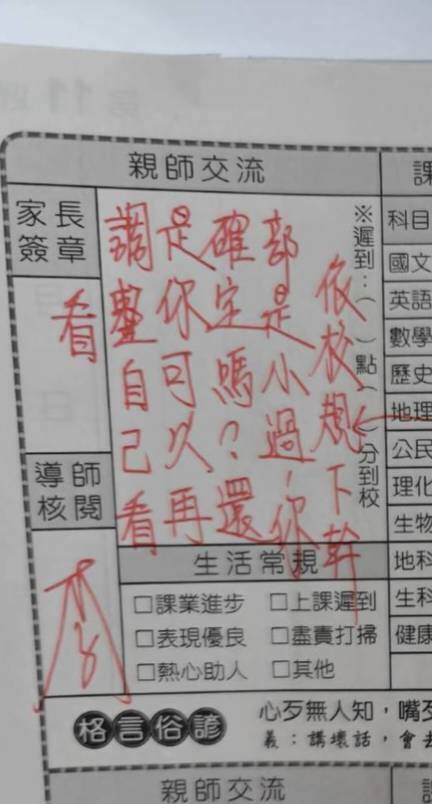 親師交流
家長
簽章
※遲到：（　）點（　）分到校
依校規下幹
部是小過，你
確定嗎？還
是你可以再
調整自己看
看
導師
核閱
生活常規
□課業進步 □上課遲到
□表現優良 □盡責打掃
□熱心助人 □其他
科目
國文
英語
數學
歷史
地理
公民
理化
生物
地科
生科
健康
格言俗諺
心歹無人知，嘴歹
義：講壞話，會去
親師交流